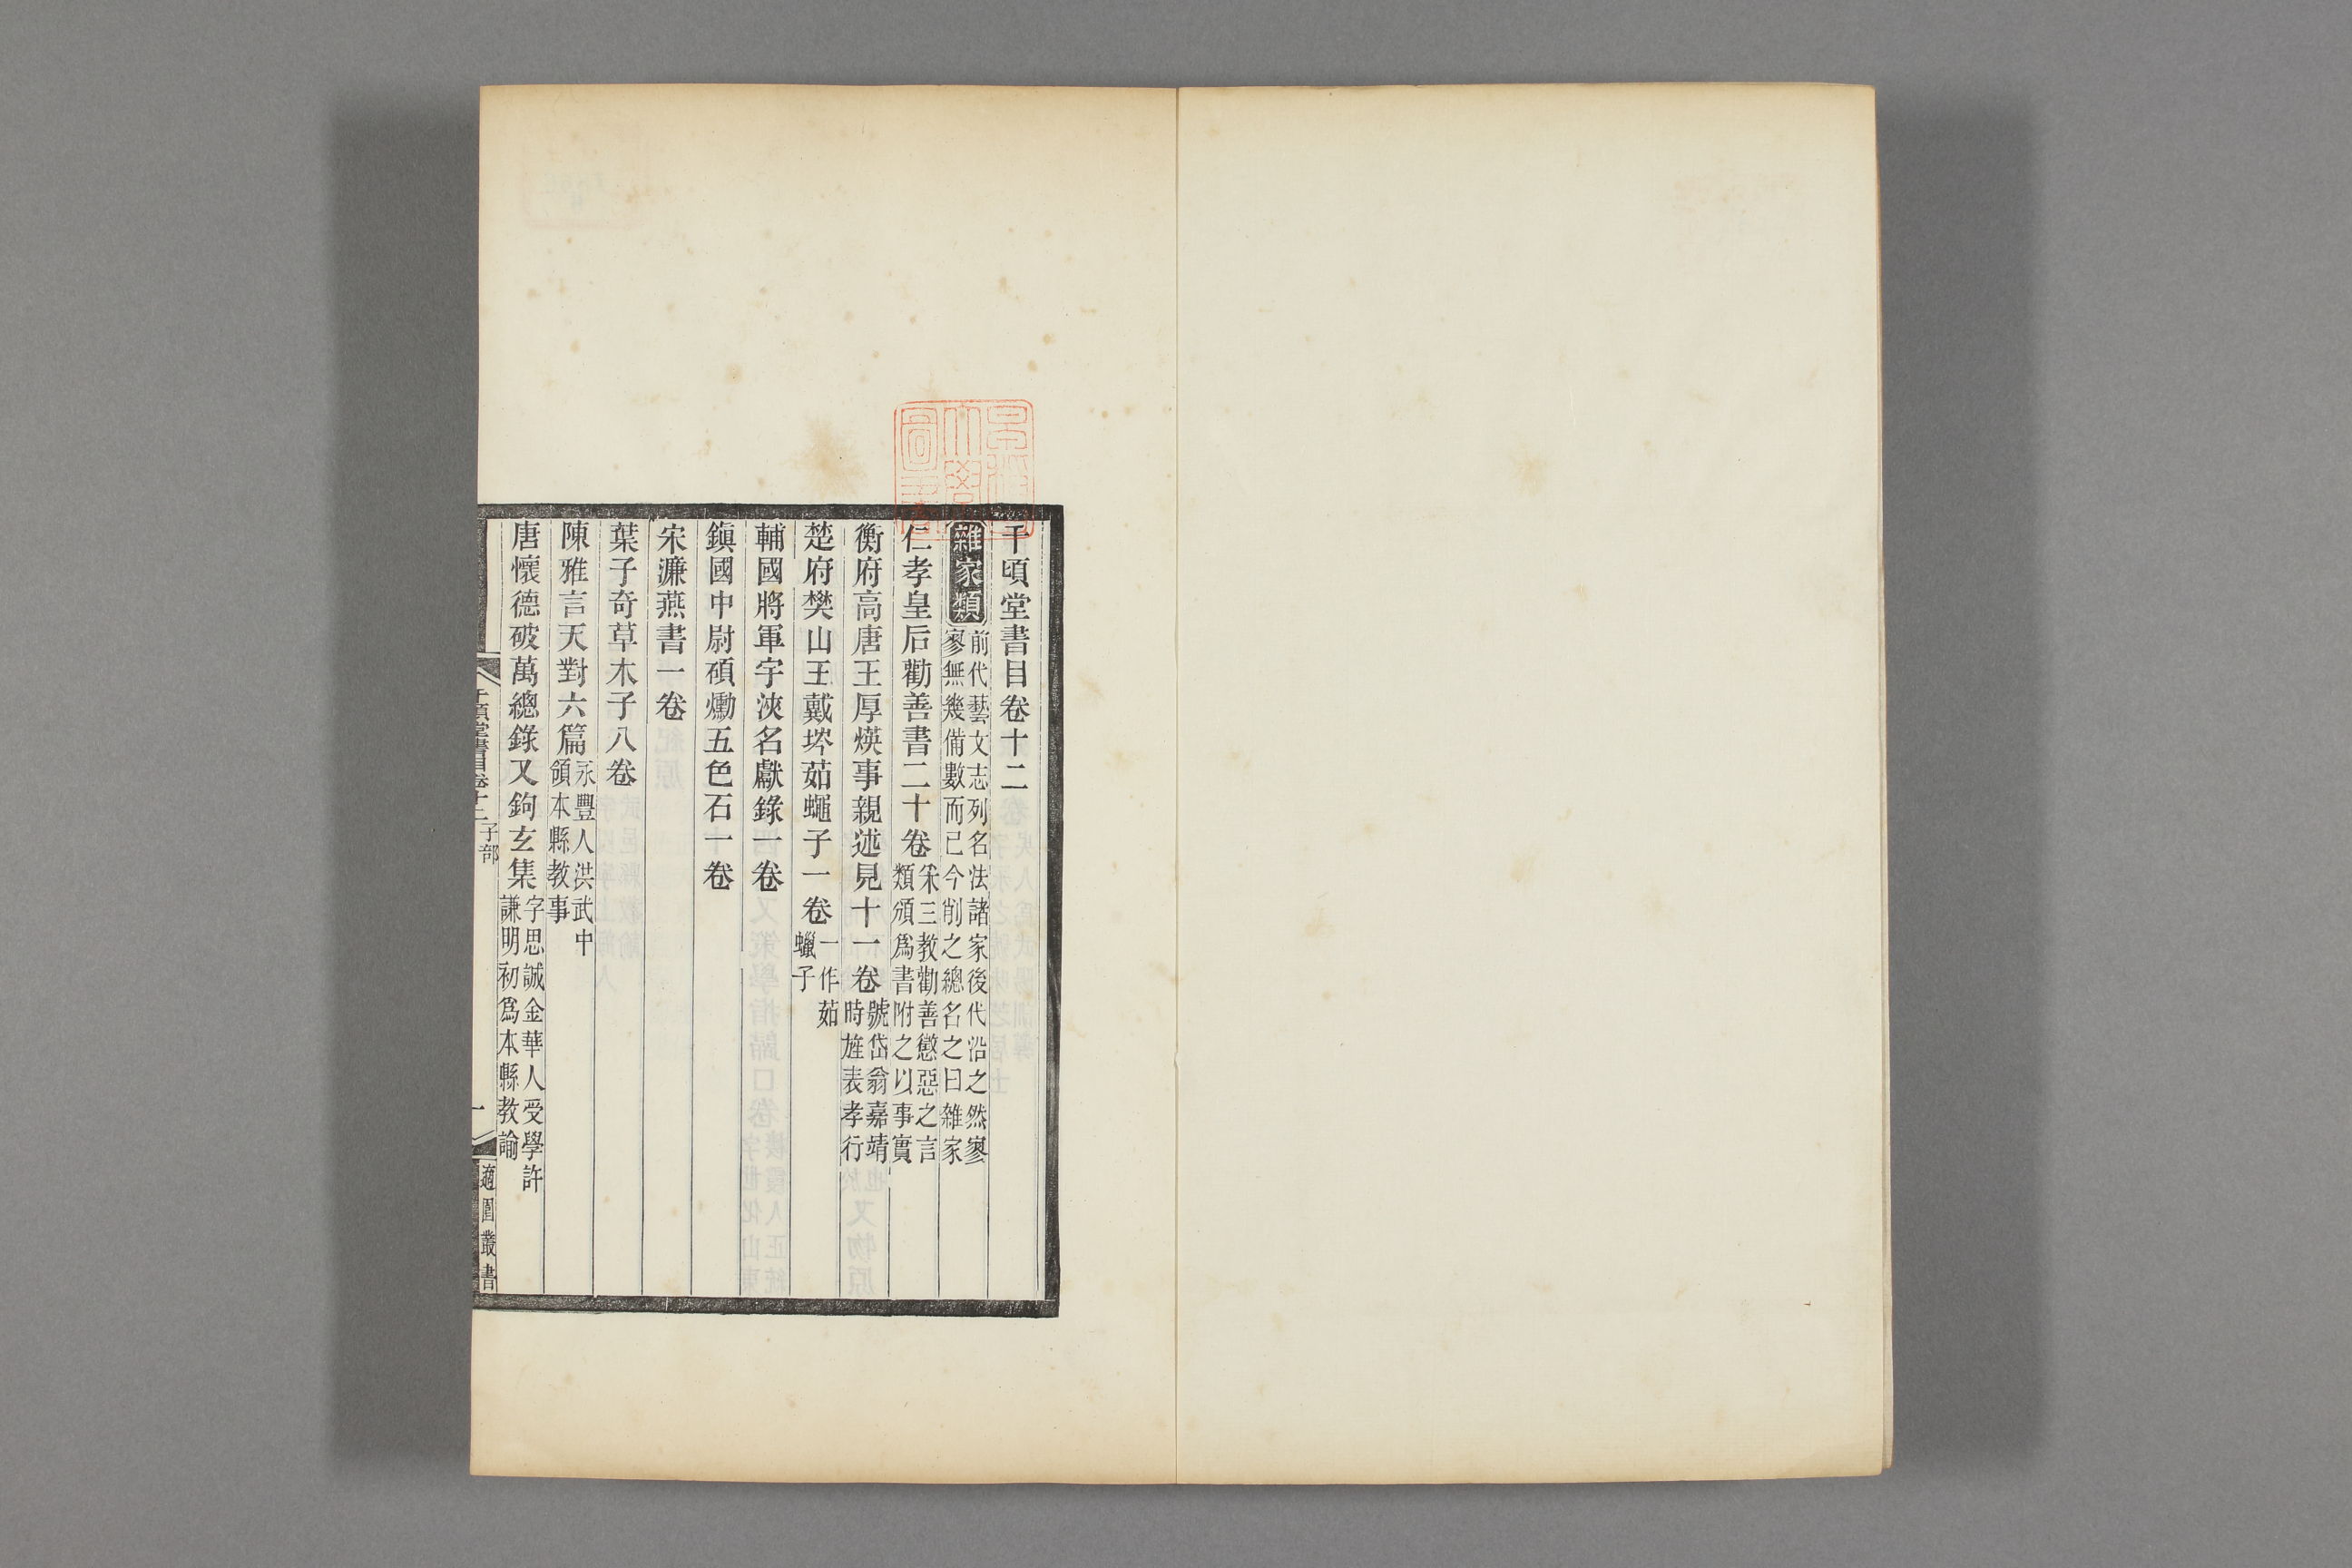 千頃堂書目卷十二
雜家類 前代藝文志列名法諸家後代沿之然寥
寥無幾備數而已今削之總名之曰雜家
仁孝皇后勸善書二十卷 采三教勸善懲惡之言
類頒爲書附之以事實
衡府高唐王厚煐事親述見十一卷 號岱翁嘉靖
時旌表孝行
楚府樊山王戴坅茹蠅子一卷 一作茹
蠟子
輔國將軍字浹名獻錄一卷
鎮國中尉碩爋五色石一卷
宋濂燕書一卷
葉子奇草木子八卷
陳雅言天對六篇 永豐人洪武中
領本縣教事
唐懷德破萬總錄又鉤玄集 字思誠金華人受學許
謙明初爲本縣教諭
千頃堂書目卷十二 子部
一
適園叢書